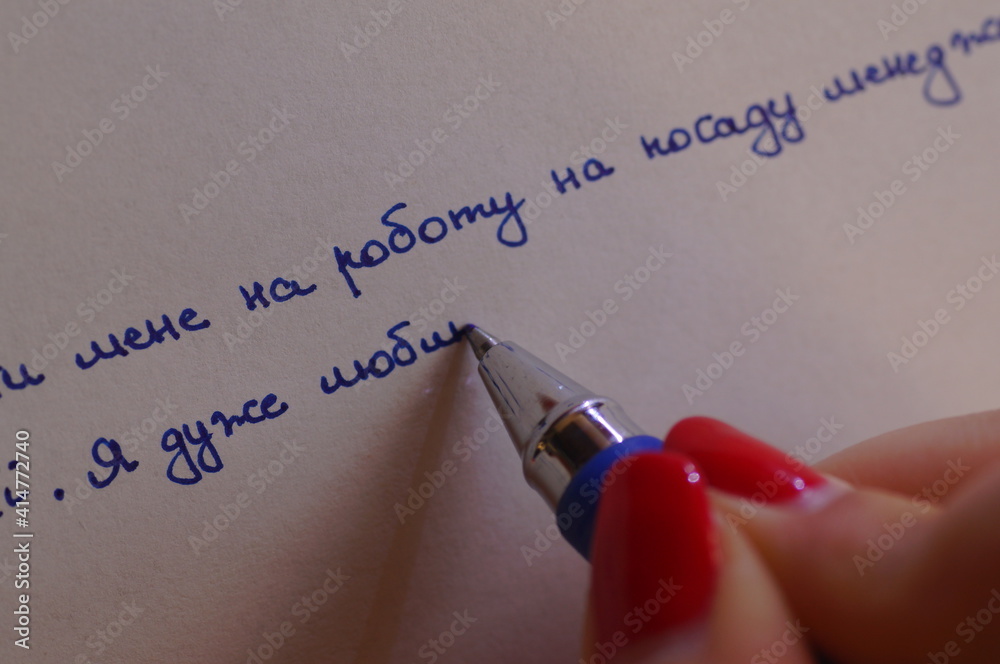 ти мене на роботу на посаду менедже
і. Я дуже люби
Adobe Stock | #414772740